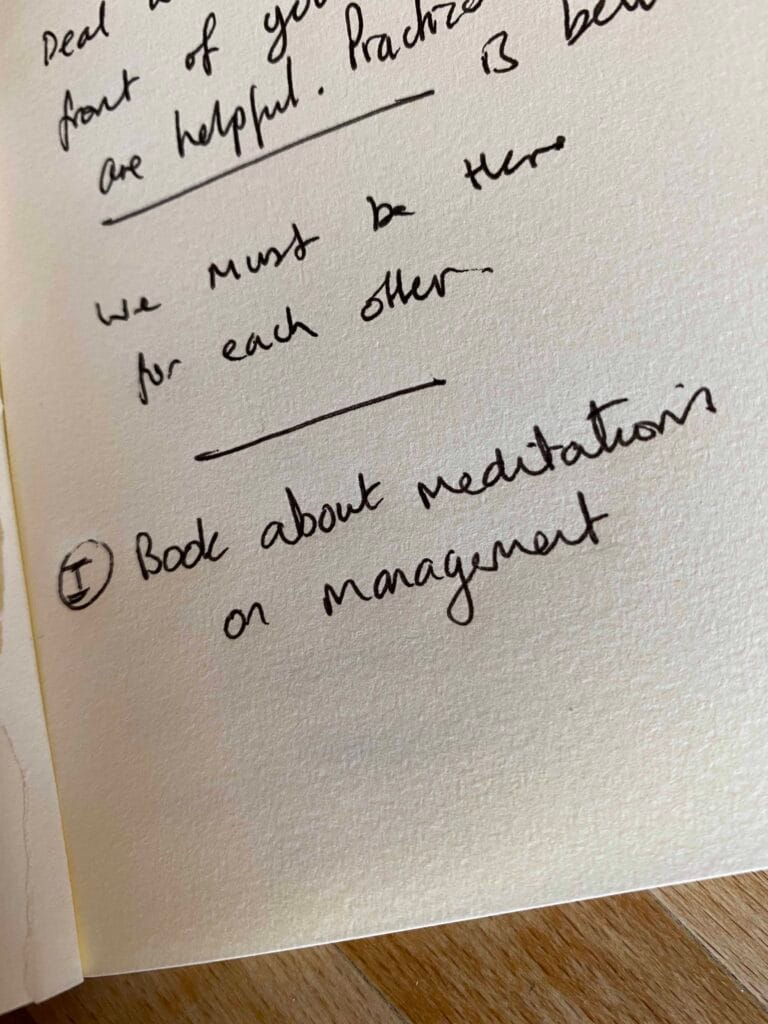 Deal
front of
are helpful. Practice is
we must be there
for each other.
I Book about meditations
on management